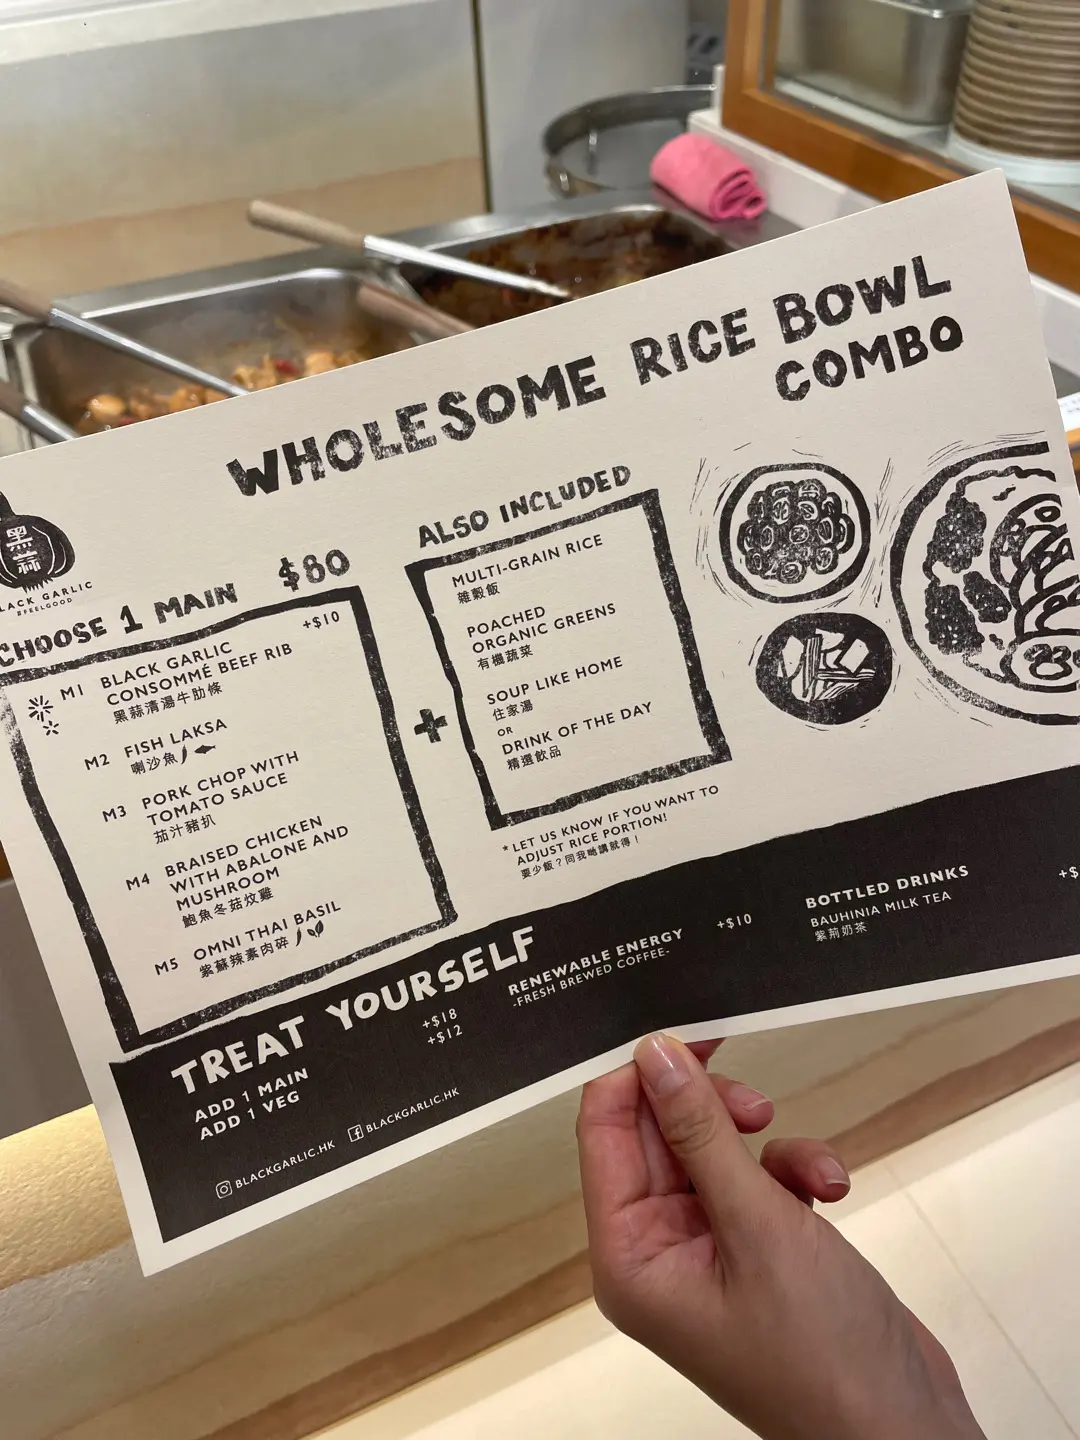 WHOLESOME RICE BOWL
COMBO
黑蒜
BLACK GARLIC
#FEELGOOD
CHOOSE 1 MAIN $80
+$10
M1 BLACK GARLIC
CONSOMMÉ BEEF RIB
黑蒜清湯牛肋條
M2 FISH LAKSA
喇沙魚
M3 PORK CHOP WITH
TOMATO SAUCE
茄汁豬扒
M4 BRAISED CHICKEN
WITH ABALONE AND
MUSHROOM
鮑魚冬菇炆雞
M5 OMNI THAI BASIL
紫蘇辣素肉碎
+
ALSO INCLUDED
MULTI-GRAIN RICE
雜穀飯
POACHED
ORGANIC GREENS
有機蔬菜
SOUP LIKE HOME
住家湯
OR
DRINK OF THE DAY
精選飲品
* LET US KNOW IF YOU WANT TO
ADJUST RICE PORTION!
要少飯？同我哋講就得！
TREAT YOURSELF
ADD 1 MAIN +$18
ADD 1 VEG +$12
RENEWABLE ENERGY +$10
-FRESH BREWED COFFEE-
BOTTLED DRINKS +$
BAUHINIA MILK TEA
紫荊奶茶
BLACKGARLIC.HK BLACKGARLIC.HK